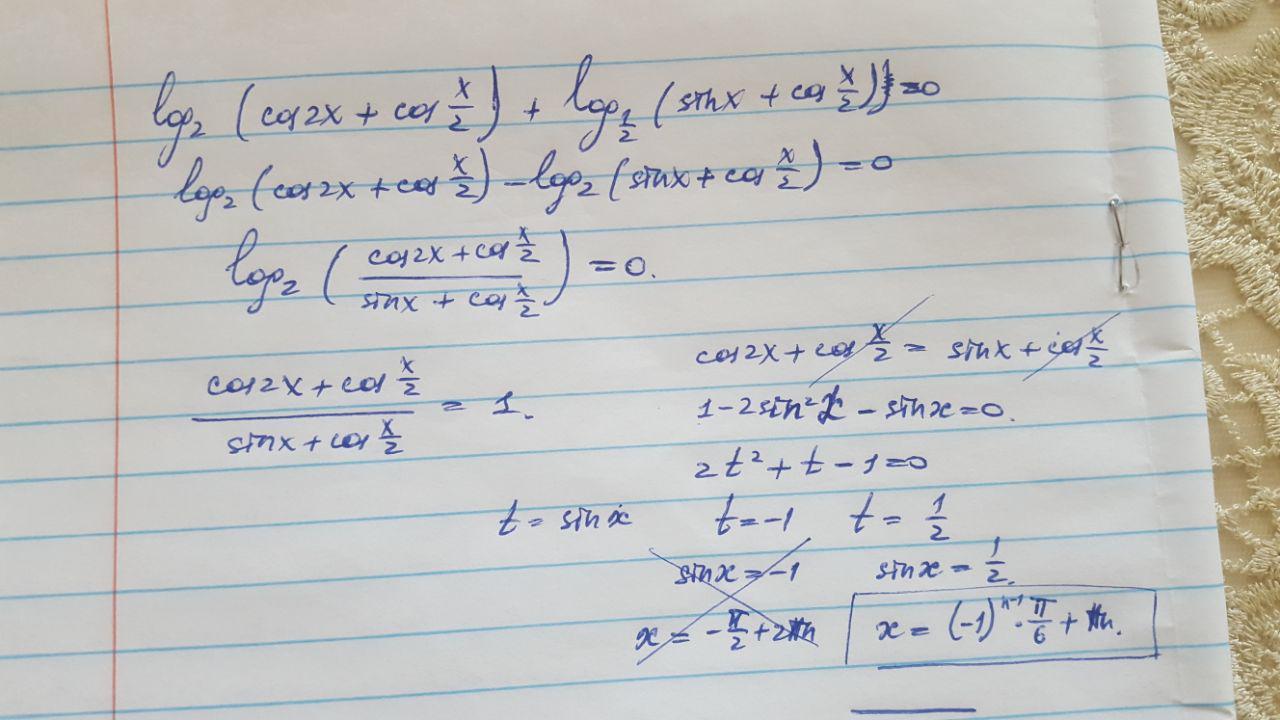 log₂ (cos 2x + cos x/2) + log₁/₂ (sin x + cos x/2) = 0
log₂ (cos 2x + cos x/2) - log₂ (sin x + cos x/2) = 0
log₂ ((cos 2x + cos x/2)/(sin x + cos x/2)) = 0.
(cos 2x + cos x/2)/(sin x + cos x/2) = 1.
cos 2x + cos x/2 = sin x + cos x/2
1 - 2 sin² x - sin x = 0.
2t² + t - 1 = 0
t = sin x t = -1 t = 1/2
sin x = -1 sin x = 1/2.
x = -π/2 + 2πn x = (-1)ⁿ⁻¹ · π/6 + πn.